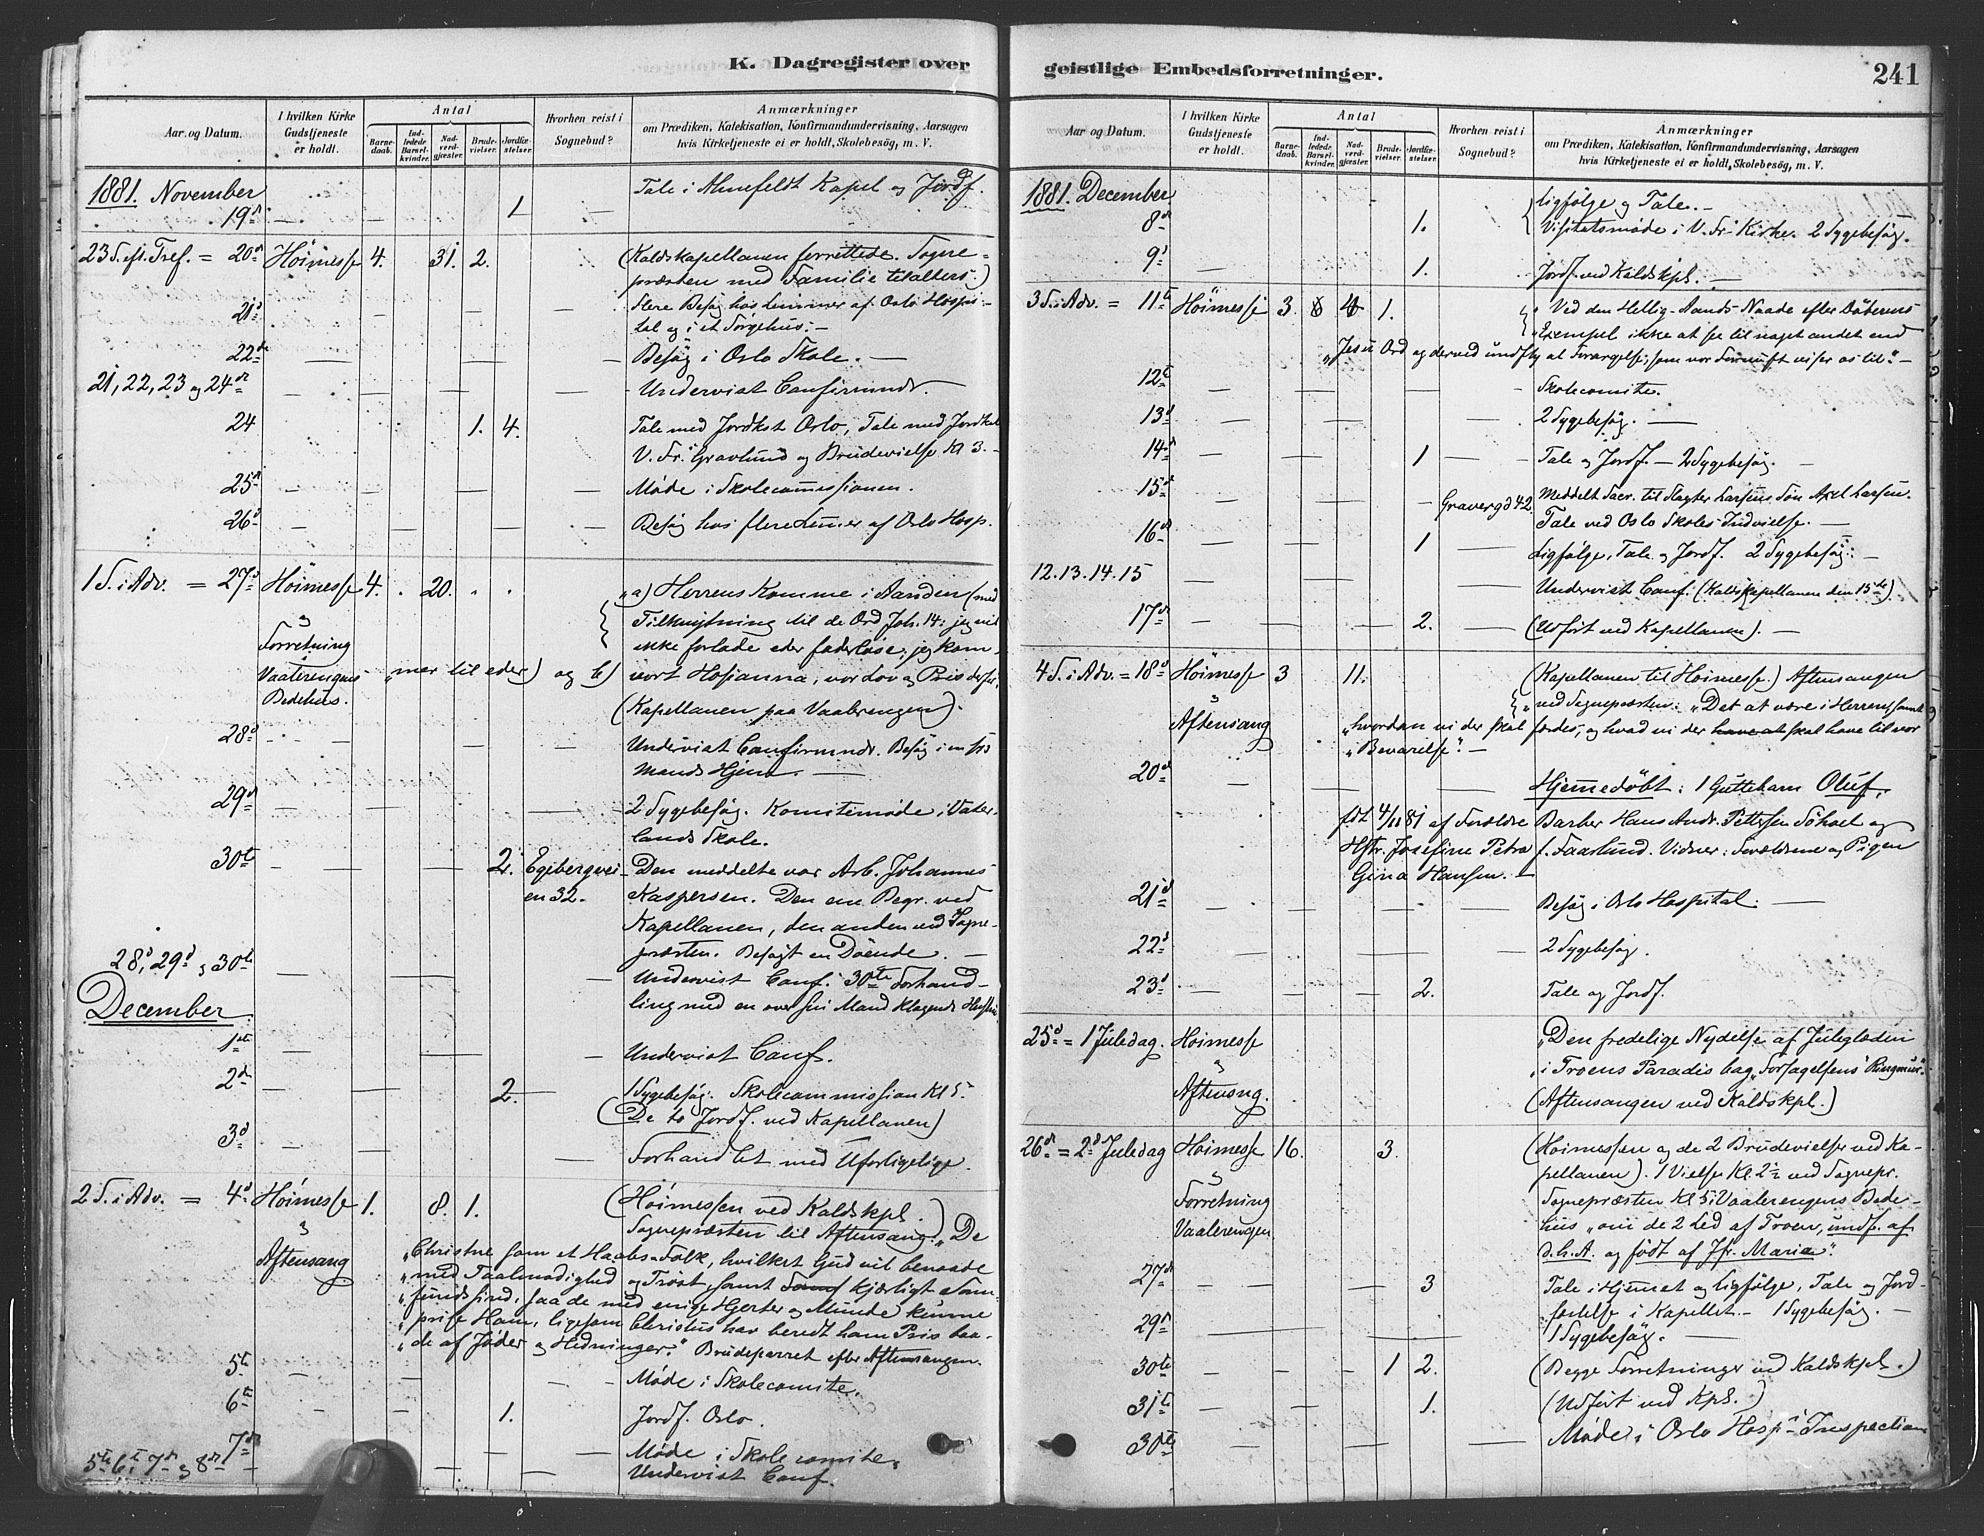 K. Dagregister over
Aar og Datum.
I hvilken Kirke Gudstjeneste er holdt.
Antal
Barnedaab.
Indledede Barselkvinder.
Nadverdgjester.
Brudevielser.
Jordfæstelser.
Hvorhen reist i Sognebud?
Anmærkninger
om Prædiken, Katekisation, Konfirmandundervisning, Aarsagen
hvis Kirketjeneste ei er holdt, Skolebesøg, m. V.
1881. November
19de — — 1 — Tale i Ahnefeldt Kapel og Jordf.
23 S. eft. Tref. = 20de Høimesse 4. 31. 2. (Kaldskapellanen forrettede. Sogne-
præsten med Familie til alters.)
21de — — — — flere Besøg hos Lemmer af Oslo Hospi-
tal og i et Sørgehus. —
22de — — — — Besøg i Oslo Skole. —
21, 22, 23 og 24de — — — Undervist Confirmnds.
24 1. 4. Tale med Jordkst Oslo, Tale med Jordkst
V. Fr. Gravlund og Brudevielse Kl 3. —
25de — — — — Møde i Skolecommissionen.
26de — — — — Besøg hos flere Lemmer af Oslo Hosp.
1 S. i Adv. = 27de Høimesse 4. 20. „a) Herrens Komme i Aanden (med
& Tilknytning til de Ord Joh. 14: jeg vil
Forretning ikke forlade eder faderløse, jeg kom-
Vaalerengens „mer til eder) og b) vort Hosianna, vor Lov og Pris
Bedehus. (Kapellanen paa Vaalerengen).
28de — — — — Undervist Confirmnds. Besøg i
Mands Hjem. —
29de — — — — 2 Sygebesøg. Komitemøde i Vater-
lands Skole.
30te — — — 2. Egebergvei- Den meddelte var Arb. Johannes
en 32. Kaspersen. Den ene Begr. ved
Kapellanen, den anden ved Sogne-
præsten. Besøgt en Døende. —
28de, 29de & 30te — — — Undervist Conf. 30te Forhand-
ling med en over sin Mand klagende Hustru
December
1ste — — — — Undervist Conf.
2den — — — 2. — 1 Sygebesøg. Skolecommission Kl 5.
(De to Jordf. ved Kapellanen)
3die — — — — Forhandlet med Uforligelige.
2 S. i Adv. = 4de Høimesse 1. 8. 1. (Høimessen ved Kaldskpl.)
& Sognepræsten til Aftensang: „De
Aftensang „Christne som et Haabs-Folk, hvilket Gud vil benaade
„med Taalmodighed og Trøst samt kjærligt Sam-
„fundssind, saa de med enige Hjerter og Munde kunne
„prise Ham, ligesom Christus har beredt ham Pris baa-
„de af Jøder og Hedninger.“ Brudeparret efter Aftensangen.
5te — — Møde i Skolecomite.
6te — — 1. Jordf. Oslo.
7de — — — Møde i Skolecomite.
5te 6te 7de & 8de — — Undervist Conf.
geistlige Embedsforretninger.
241
Aar og Datum.
I hvilken Kirke Gudstjeneste er holdt.
Antal
Barnedaab.
Indledede Barselkvinder.
Nadverdgjester.
Brudevielser.
Jordfæstelser.
Hvorhen reist i Sognebud?
Anmærkninger
om Prædiken, Katekisation, Konfirmandundervisning, Aarsagen
hvis Kirketjeneste ei er holdt, Skolebesøg, m. V.
1881. December
8de 1. Ligfølge og Tale. —
Visitatsmøde i V. Fr. Kirke. 2 Sygebesøg.
9de — 1. Jordf. ved Kaldskpl. —
3 S. i Adv. = 11te Høimesse 3 4 1. „Ved den Hellig-Aands Naade efter Døberens
„Exempel ikke at se til noget andet end
„Jesu Ord og derved undfly al Forargelse, som vor Fornuft viser os til.“ —
12te — — — — Skolecomite.
13de — — — — 2 Sygebesøg. —
14de — — 1 — Tale og Jordf. — 2 Sygebesøg. —
15de — — — Gravergd 42. Meddelt Sacr. til Slagter Larsens Søn Axel Larsen.
Tale ved Oslo Skoles Indvielse. —
16de — — 1 — Ligfølge, Tale og Jordf. 2 Sygebesøg. —
12. 13. 14. 15 — — — Undervist Conf. (Kaldskapellanen den 15de)
17de — — 2. — (Udført ved Kapellanen). —
4 S. i Adv. = 18de Høimesse 3 11. (Kapellanen til Høimesse.) Aftensangen
& „ved Sognepræsten: „Det at være i Herren, samt
Aftensang „hvordan vi der skal fordes, og hvad vi der have at skal have til vor
„Bevarelse“. —
20de — — — Hjemmedøbt: 1 Guttebarn Oluf,
fdt 4/11 81 af Forældre Barber Hans Andr. Pettersen Søholt og
Hstr. Josefine Petra f. Faarlund. Vidner: Forældrene og Pigen
Gina Hansen. —
21de — — — Besøg i Oslo Hospital. —
22de — — — 2 Sygebesøg.
23de — — 2. Tale og Jordf.
25de = 1 Juledag. Høimesse „Den fredelige Nydelse af Juleglæden
& „i Troens Paradis bag „Forsagelsens Ringmur“.
Aftensng. (Aftensangen ved Kaldskpl.)
26de = 2d Juledag Høimesse 16. 3. (Høimessen og de 2 Brudevielser ved Ka-
& pellanen). 1 Vielse Kl. 2½ ved Sognepr.
Forretning Sognepræsten Kl 5 i Vaalerengens Bede-
Vaalerengen hus „om de 2 Led af Troen, undf. af
d. h. A. og født af Jfr. Maria“.
27de — — — 3 Tale i Hjemmet og Ligfølge, Tale og Jord-
fæstelse i Kapellet. — 1 Sygebesøg. —
29de — — — 1 Sygebesøg. —
30te — — 1 2. (Begge Forretninger ved Kaldskpl.)
31te — — 1. (Udført ved Kpl.)
30te — — — Møde i Oslo Hosp. Inspection